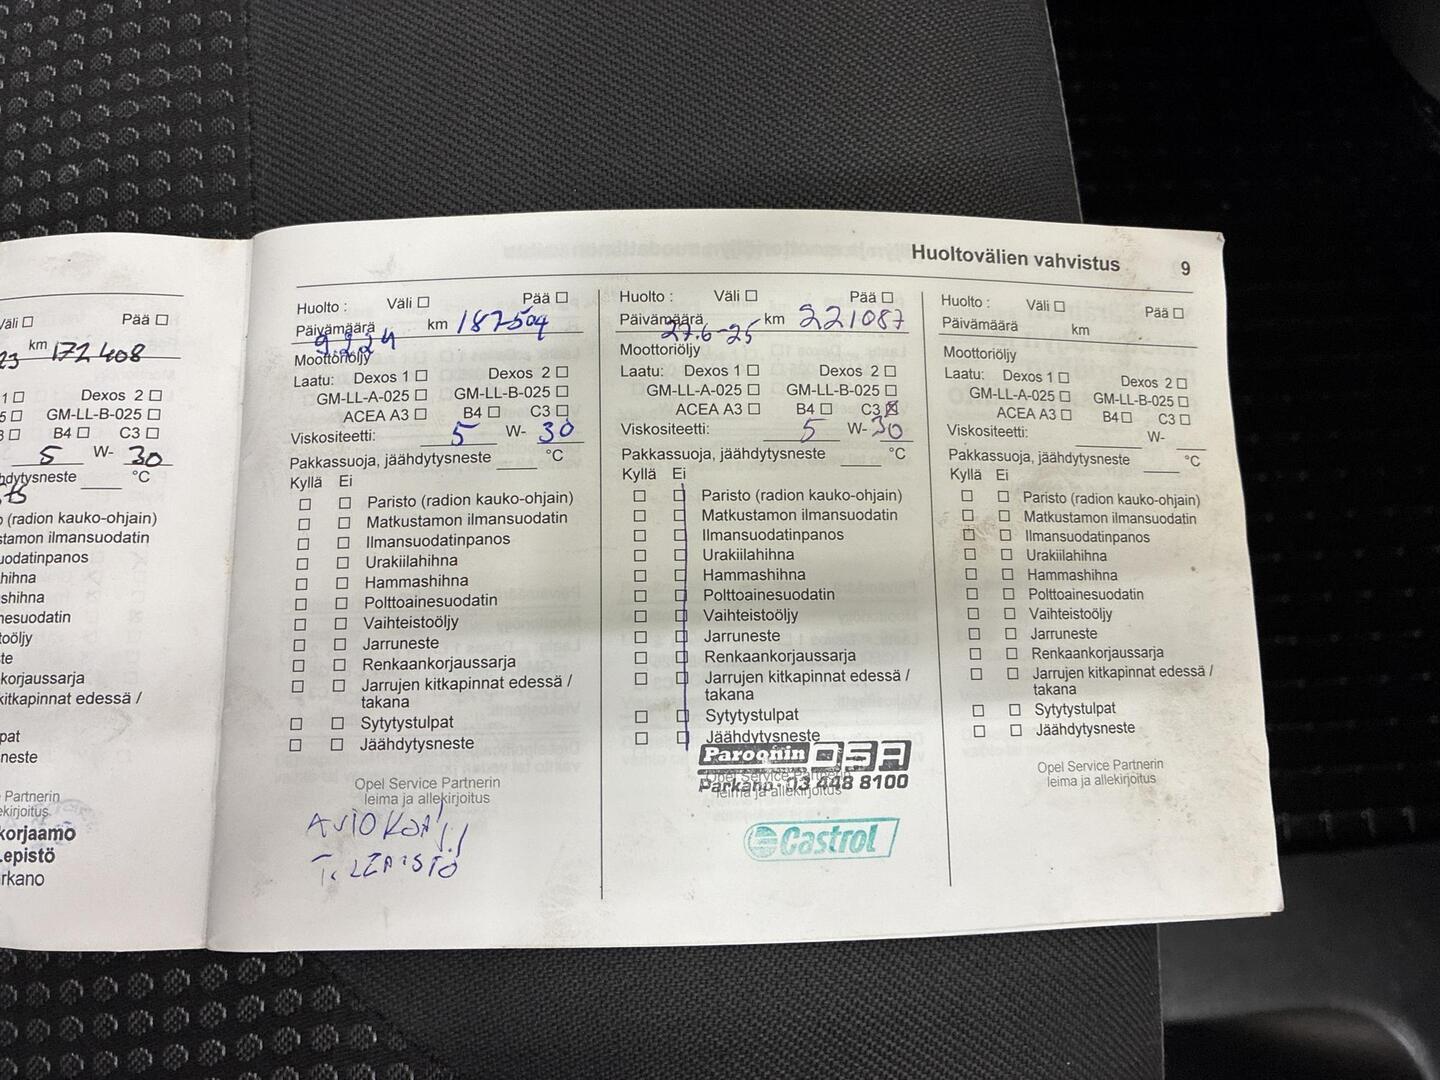 Väli ☐ Pää ☐
23 km 172 408
1 ☐ Dexos 2 ☐
5 ☐ GM-LL-B-025 ☐
3 ☐ B4 ☐ C3 ☐
5 W- 30
hdytysneste ____ °C
o (radion kauko-ohjain)
stamon ilmansuodatin
uodatinpanos
hihna
shihna
nesuodatin
stoöljy
te
korjaussarja
kitkapinnat edessä /
pat
neste
Partnerin
ekirjoitus
korjaamo
Lepistö
rkano
Huoltovälien vahvistus 9
Huolto : Väli ☐ Pää ☐
Päivämäärä km 187504
9.2.24
Moottoriöljy
Laatu: Dexos 1 ☐ Dexos 2 ☐
GM-LL-A-025 ☐ GM-LL-B-025 ☐
ACEA A3 ☐ B4 ☐ C3 ☐
Viskositeetti: 5 W- 30
Pakkassuoja, jäähdytysneste ____ °C
Kyllä Ei
☐ ☐ Paristo (radion kauko-ohjain)
☐ ☐ Matkustamon ilmansuodatin
☐ ☐ Ilmansuodatinpanos
☐ ☐ Urakiilahihna
☐ ☐ Hammashihna
☐ ☐ Polttoainesuodatin
☐ ☐ Vaihteistoöljy
☐ ☐ Jarruneste
☐ ☐ Renkaankorjaussarja
☐ ☐ Jarrujen kitkapinnat edessä /
takana
☐ ☐ Sytytystulpat
☐ ☐ Jäähdytysneste
Opel Service Partnerin
leima ja allekirjoitus
T. LEPISTÖ
Huolto : Väli ☐ Pää ☐
Päivämäärä km 221087
27.6-25
Moottoriöljy
Laatu: Dexos 1 ☐ Dexos 2 ☐
GM-LL-A-025 ☐ GM-LL-B-025 ☐
ACEA A3 ☐ B4 ☐ C3 ☒
Viskositeetti: 5 W- 30
Pakkassuoja, jäähdytysneste ____ °C
Kyllä Ei
☐ ☐ Paristo (radion kauko-ohjain)
☐ ☐ Matkustamon ilmansuodatin
☐ ☐ Ilmansuodatinpanos
☐ ☐ Urakiilahihna
☐ ☐ Hammashihna
☐ ☐ Polttoainesuodatin
☐ ☐ Vaihteistoöljy
☐ ☐ Jarruneste
☐ ☐ Renkaankorjaussarja
☐ ☐ Jarrujen kitkapinnat edessä /
takana
☐ ☐ Sytytystulpat
☐ ☐ Jäähdytysneste
Paroonin OSA
Opel Service Partnerin
Parkano. 03 448 8100
leima ja allekirjoitus
Castrol
Huolto : Väli ☐ Pää ☐
Päivämäärä km
Moottoriöljy
Laatu: Dexos 1 ☐ Dexos 2 ☐
GM-LL-A-025 ☐ GM-LL-B-025 ☐
ACEA A3 ☐ B4 ☐ C3 ☐
Viskositeetti: ____ W- ____
Pakkassuoja, jäähdytysneste ____ °C
Kyllä Ei
☐ ☐ Paristo (radion kauko-ohjain)
☐ ☐ Matkustamon ilmansuodatin
☐ ☐ Ilmansuodatinpanos
☐ ☐ Urakiilahihna
☐ ☐ Hammashihna
☐ ☐ Polttoainesuodatin
☐ ☐ Vaihteistoöljy
☐ ☐ Jarruneste
☐ ☐ Renkaankorjaussarja
☐ ☐ Jarrujen kitkapinnat edessä /
takana
☐ ☐ Sytytystulpat
☐ ☐ Jäähdytysneste
Opel Service Partnerin
leima ja allekirjoitus